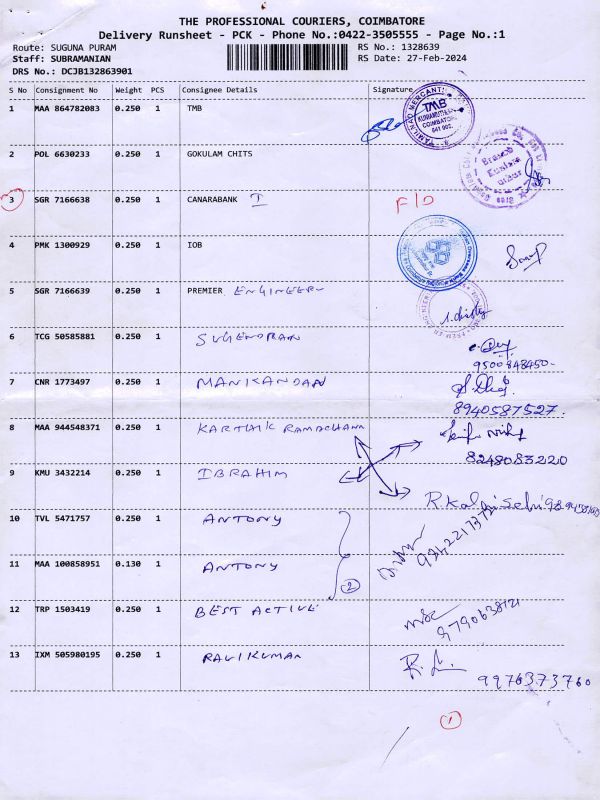 THE PROFESSIONAL COURIERS, COIMBATORE
Delivery Runsheet - PCK - Phone No.:0422-3505555 - Page No.:1
Route: SUGUNA PURAM RS No.: 1328639
Staff: SUBRAMANIAN RS Date: 27-Feb-2024
DRS No.: DCJB132863901
S No Consignment No Weight PCS Consignee Details Signature
1 MAA 864782083 0.250 1 TMB
TMB
COIMBATORE
2 POL 6630233 0.250 1 GOKULAM CHITS
Branch
3 SGR 7166638 0.250 1 CANARABANK I F/D
4 PMK 1300929 0.250 1 IOB
5 SGR 7166639 0.250 1 PREMIER ENGINEERS
6 TCG 50585881 0.250 1 SUGENDRAN
9500848450
7 CNR 1773497 0.250 1 MANIKANDAN
8940587527.
8 MAA 944548371 0.250 1 KARTHIK RAMDCHANA
8248083220
9 KMU 3432214 0.250 1 IBRAHIM
10 TVL 5471757 0.250 1 ANTONY
11 MAA 100858951 0.130 1 ANTONY
2
12 TRP 1503419 0.250 1 BEST ACTIVE
9790638121
13 IXM 505980195 0.250 1 RAVIKUMAR
9976373760
1